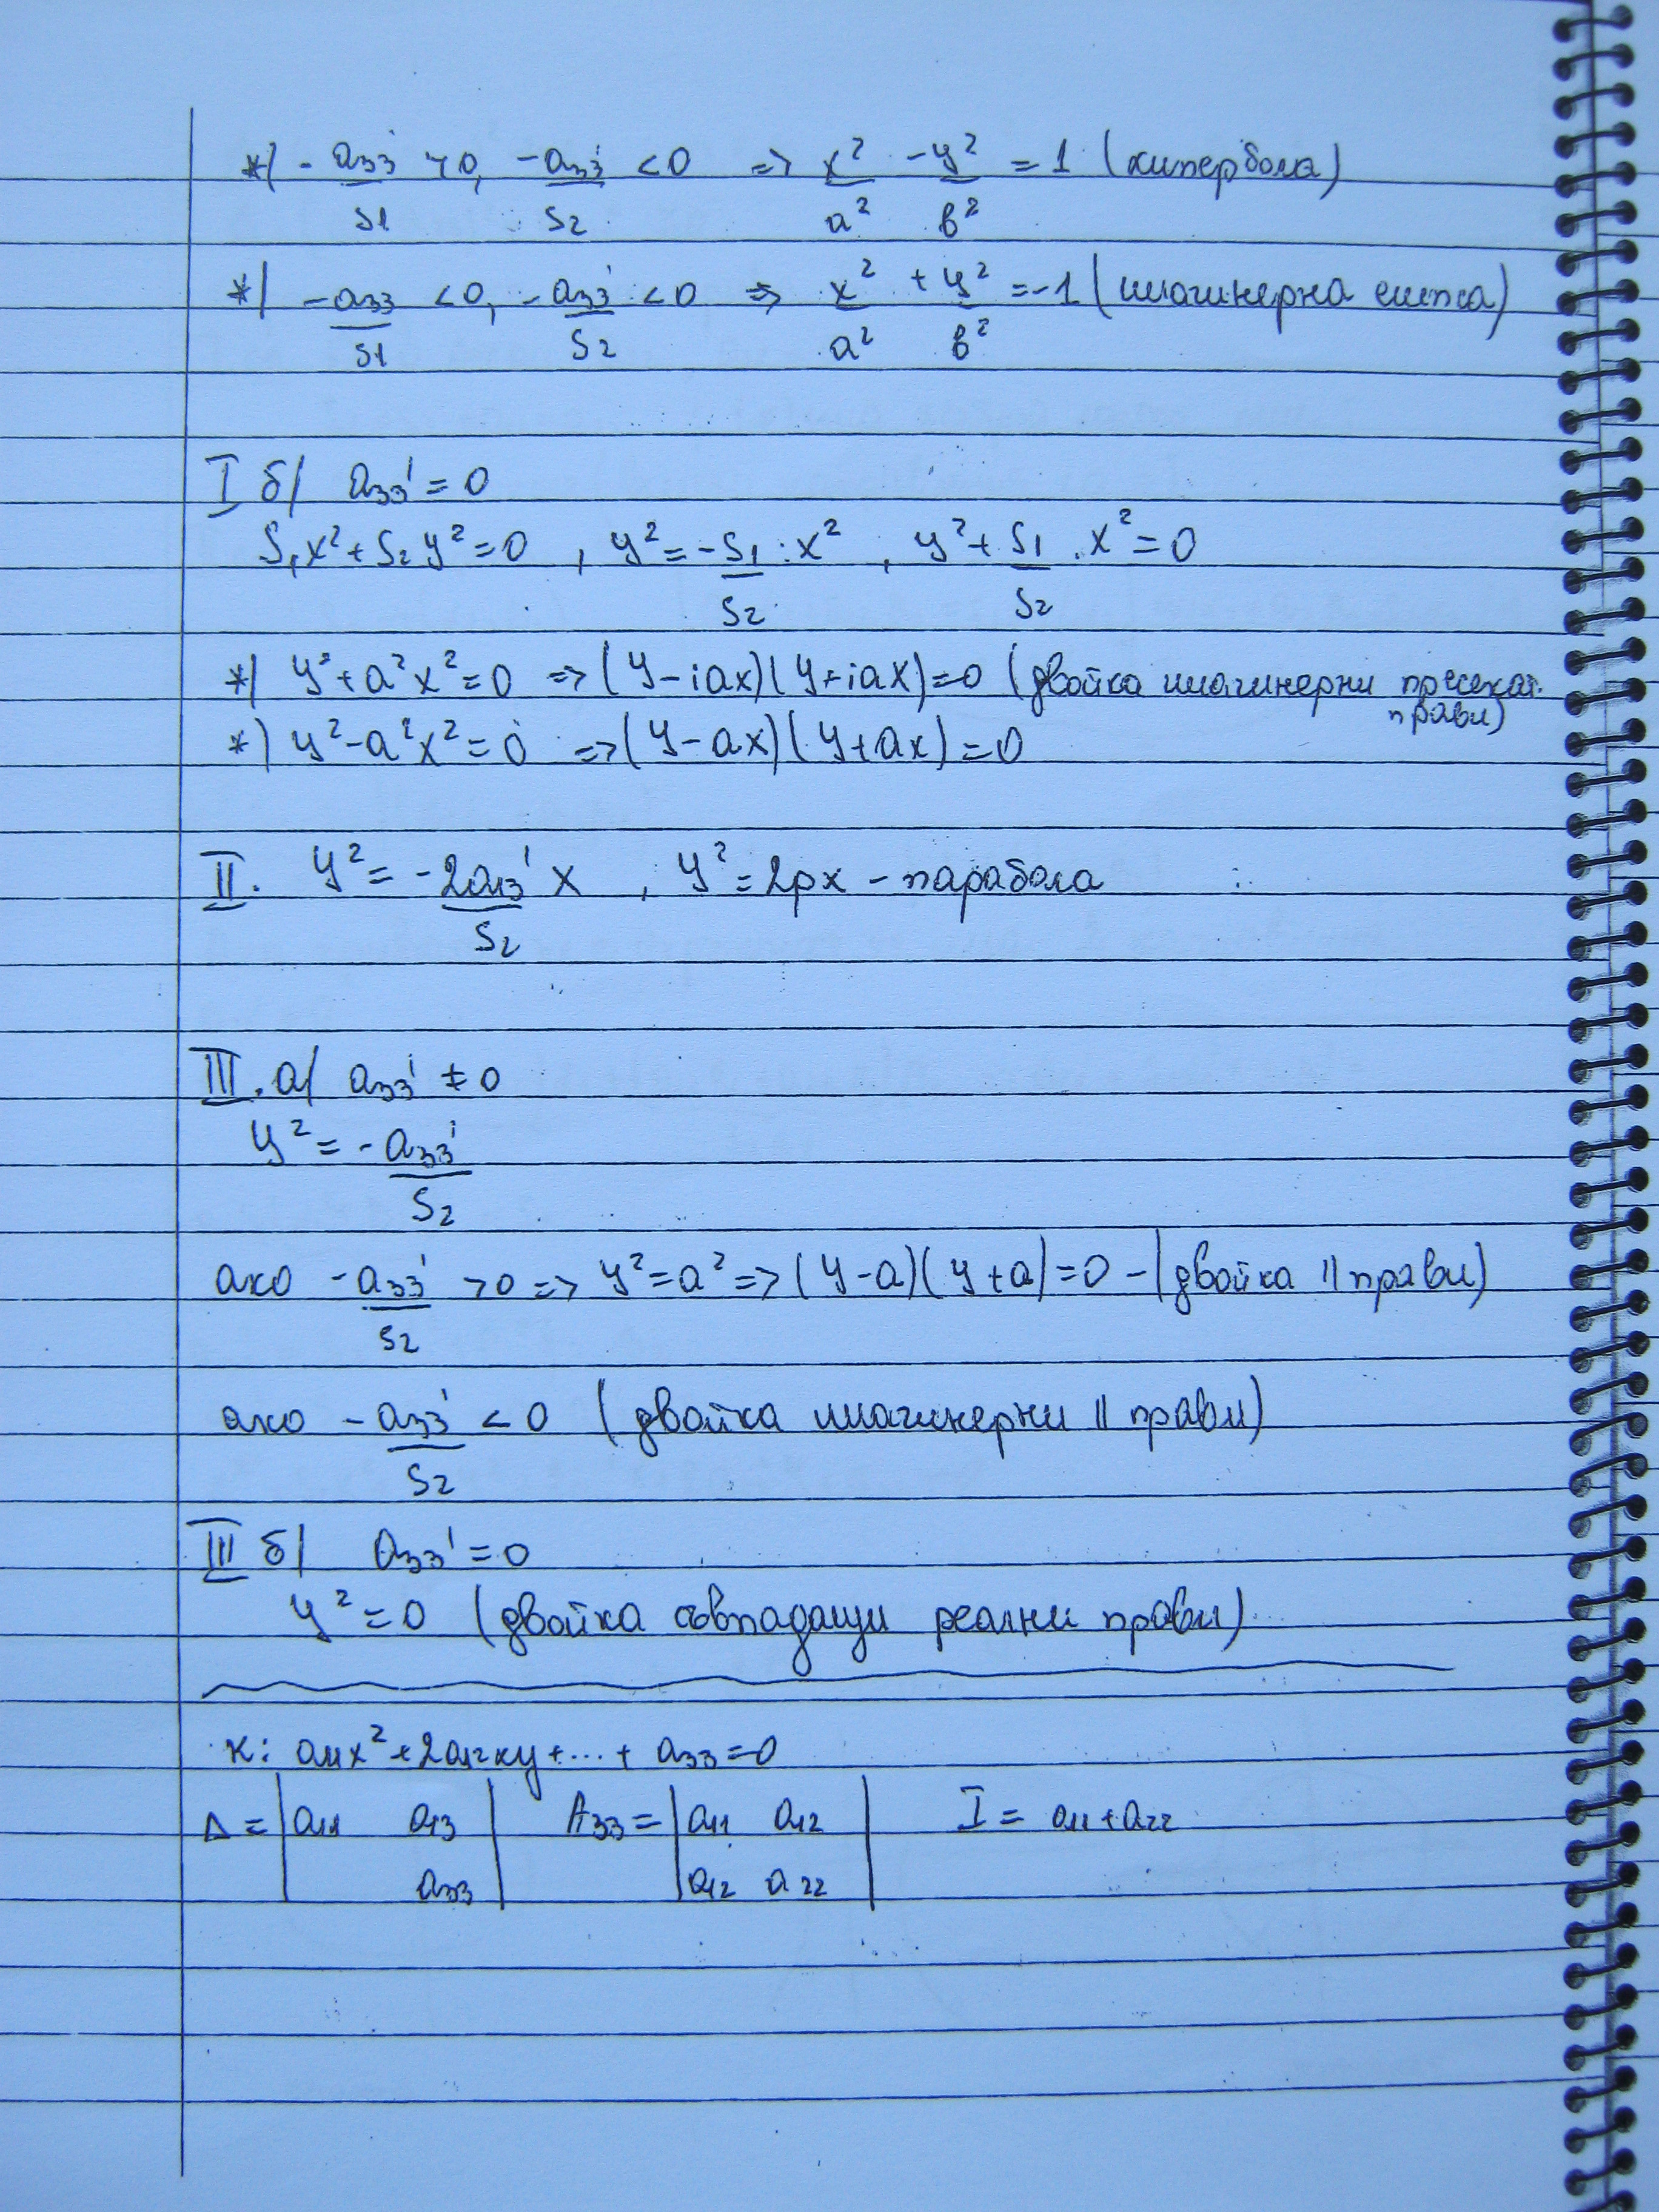 *) -a₃₃'/s₁ >0, -a₃₃'/s₂ <0 => x²/a² - y²/b² = 1 (хипербола)
*) -a₃₃'/s₁ <0, -a₃₃'/s₂ <0 => x²/a² + y²/b² = -1 (имагинерна елипса)
I б) a₃₃' = 0
S₁x² + S₂y² = 0 , y² = -S₁/S₂ . x² , y² + S₁/S₂ . x² = 0
*) y² + a²x² = 0 => (y-iax)(y+iax)=0 (двойка имагинерни пресекат.
прави)
*) y² - a²x² = 0 => (y-ax)(y+ax)=0
II. y² = -2a₁₃'/S₂ x , y² = 2px - парабола
III. а) a₃₃' ≠ 0
y² = -a₃₃'/S₂
ако -a₃₃'/S₂ >0 => y² = a² => (y-a)(y+a)=0 - (двойка || прави)
ако -a₃₃'/S₂ < 0 (двойка имагинерни || прави)
III б) a₃₃' = 0
y² = 0 (двойка съвпадащи реални прави)
к: a₁₁x² + 2a₁₂xy + ... + a₃₃ = 0
Δ = |a₁₁ a₁₃| A₃₃ = |a₁₁ a₁₂| I = a₁₁ + a₂₂
a₃₃| |a₁₂ a₂₂|